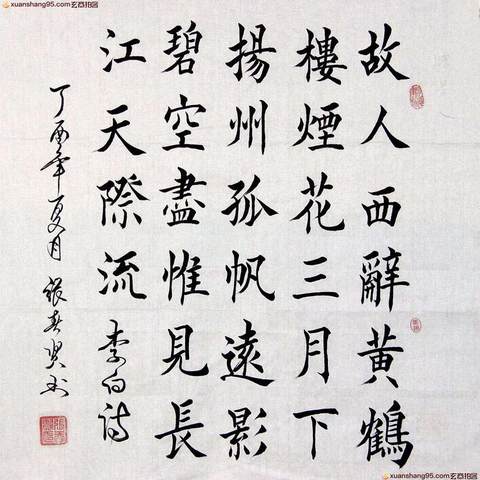 xuanshang95.com玄商拍図
故人西辭黃鶴
樓煙花三月下
揚州孤帆遠影
碧空盡惟見長
江天際流李白詩
丁酉年夏月張春賢書
xuanshang95.com玄商拍図